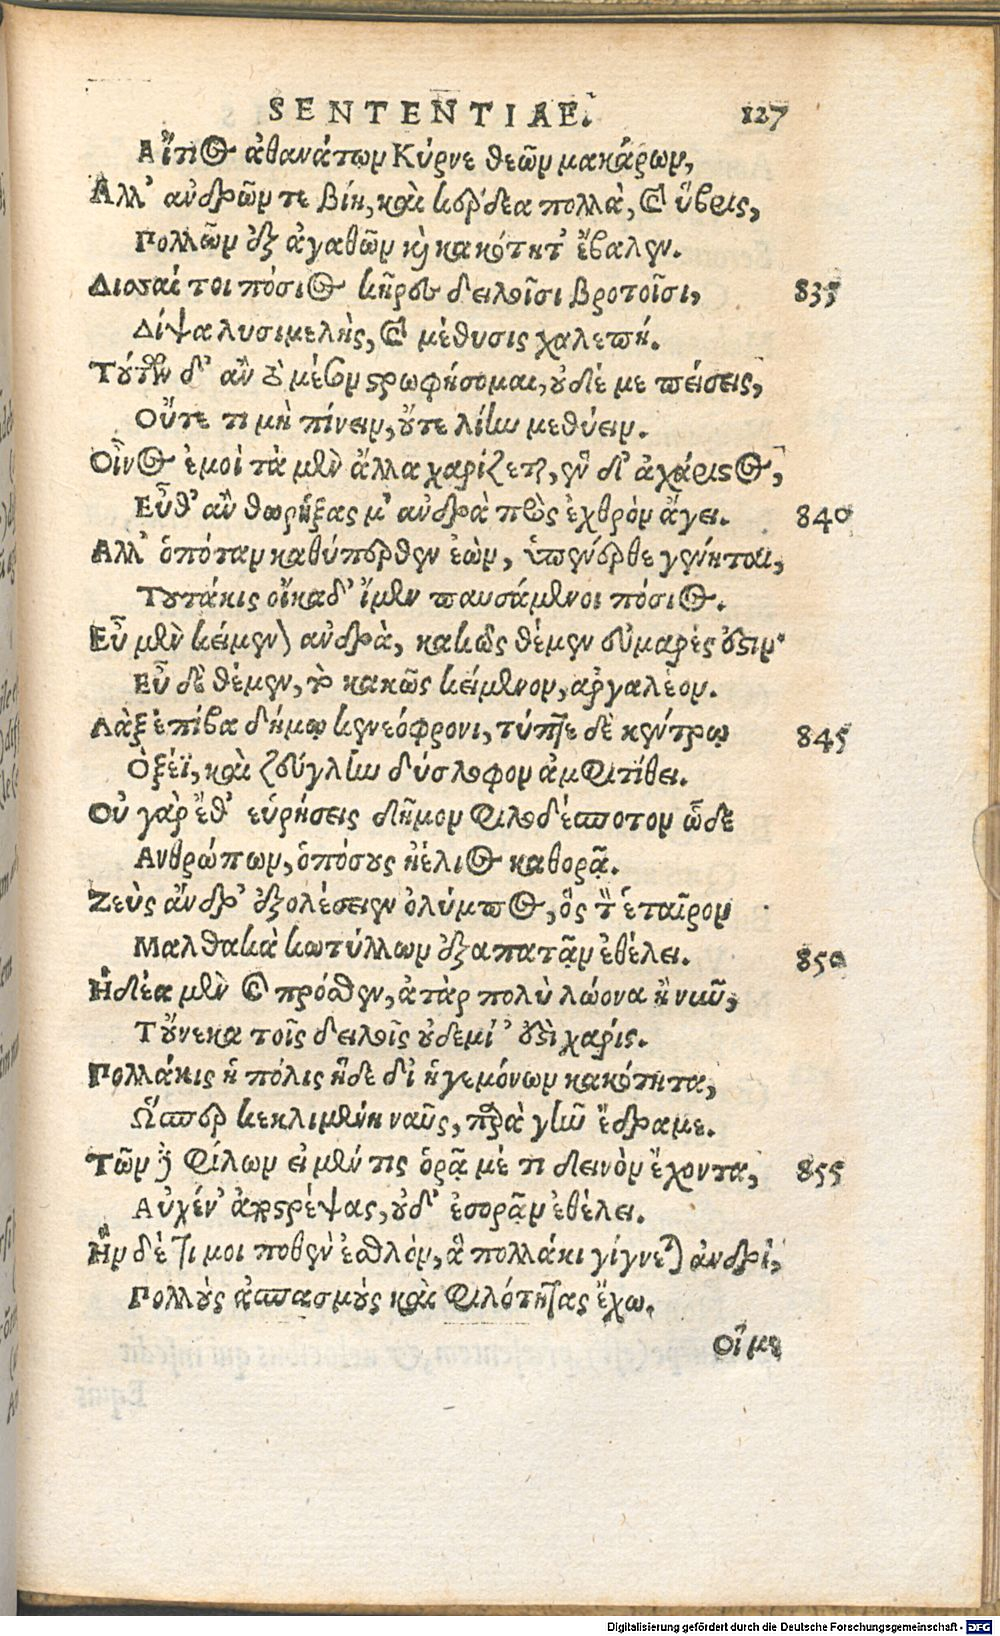 SENTENTIAE. 127
Αἴτιος ἀθανάτων Κύρνε θεῶν μακάρων,
Αλλ' ἀνδρῶν τε βίη, καὶ κέρδεα πολλὰ, καὶ ὕβρις,
Πολλῶν ἐξ ἀγαθῶν καὶ κακότητ' ἔβαλεν.
Δισσαί τοι πόσιος κῆρες δειλοῖσι βροτοῖσι, 835
Δίψα λυσιμελὴς, καὶ μέθυσις χαλεπή.
Τούτων δ' ἂν τὸ μέσον στρωφήσομαι, οὐδέ με πείσεις,
Οὔτε τι μὴ πίνειν, οὔτε λίην μεθύειν.
Οἶνος ἐμοὶ τὰ μὲν ἄλλα χαρίζεται, ἓν δ' ἀχάριστος,
Εὖθ' ἂν θωρήξας μ' ἀνδρὰ πρὸς ἐχθρὸν ἄγει. 840
Αλλ' ὁπόταν καθύπερθεν ἐὼν, ὑπένερθε γένηται,
Τουτάκις οἴκαδ' ἴμεν παυσάμενοι πόσιος.
Εὖ μὲν κείμενον ἀνδρὰ, κακῶς θέμεν εὐμαρές ἐστιν·
Εὖ δὲ θέμεν, τὸ κακῶς κείμενον, ἀργαλέον.
Λὰξ ἐπίβα δήμῳ κενεόφρονι, τύπτε δὲ κέντρῳ 845
Ὀξέϊ, καὶ ζεύγλην δύσλοφον ἀμφιτίθει.
Οὐ γὰρ ἔθ' εὑρήσεις δῆμον φιλοδέσποτον ὧδε
Ανθρώπων, ὁπόσους ἠέλιος καθορᾷ.
Ζεὺς ἄνδρ' ἐξολέσειεν ὀλύμπιος, ὃς τὸν ἑταῖρον
Μαλθακὰ κωτύλλων ἐξαπατᾷν ἐθέλει. 850
Ηἴδέα μὲν καὶ πρόσθεν, ἀτὰρ πολὺ λώονα ἢ νῦν,
Τοὔνεκα τοῖς δειλοῖς οὐδεμί' ἐστὶ χάρις.
Πολλάκις ἡ πόλις ἥδε δι' ἡγεμόνων κακότητα,
Ὥσπερ κεκλιμένη ναῦς, παρὰ γῆν ἔδραμε.
Τῶν δὲ φίλων εἰ μέν τις ὁρᾷ μέ τι δεινὸν ἔχοντα, 855
Αὐχέν' ἀποστρέψας, οὐδ' ἐσορᾷν ἐθέλει.
Ἢν δέ τί μοι ποθὲν ἐσθλὸν, ἃ πολλάκι γίγνεται ἀνδρί,
Πολλοὺς ἀσπασμοὺς καὶ φιλότητας ἔχω.
Οἵ με
Digitalisierung gefördert durch die Deutsche Forschungsgemeinschaft - DFG